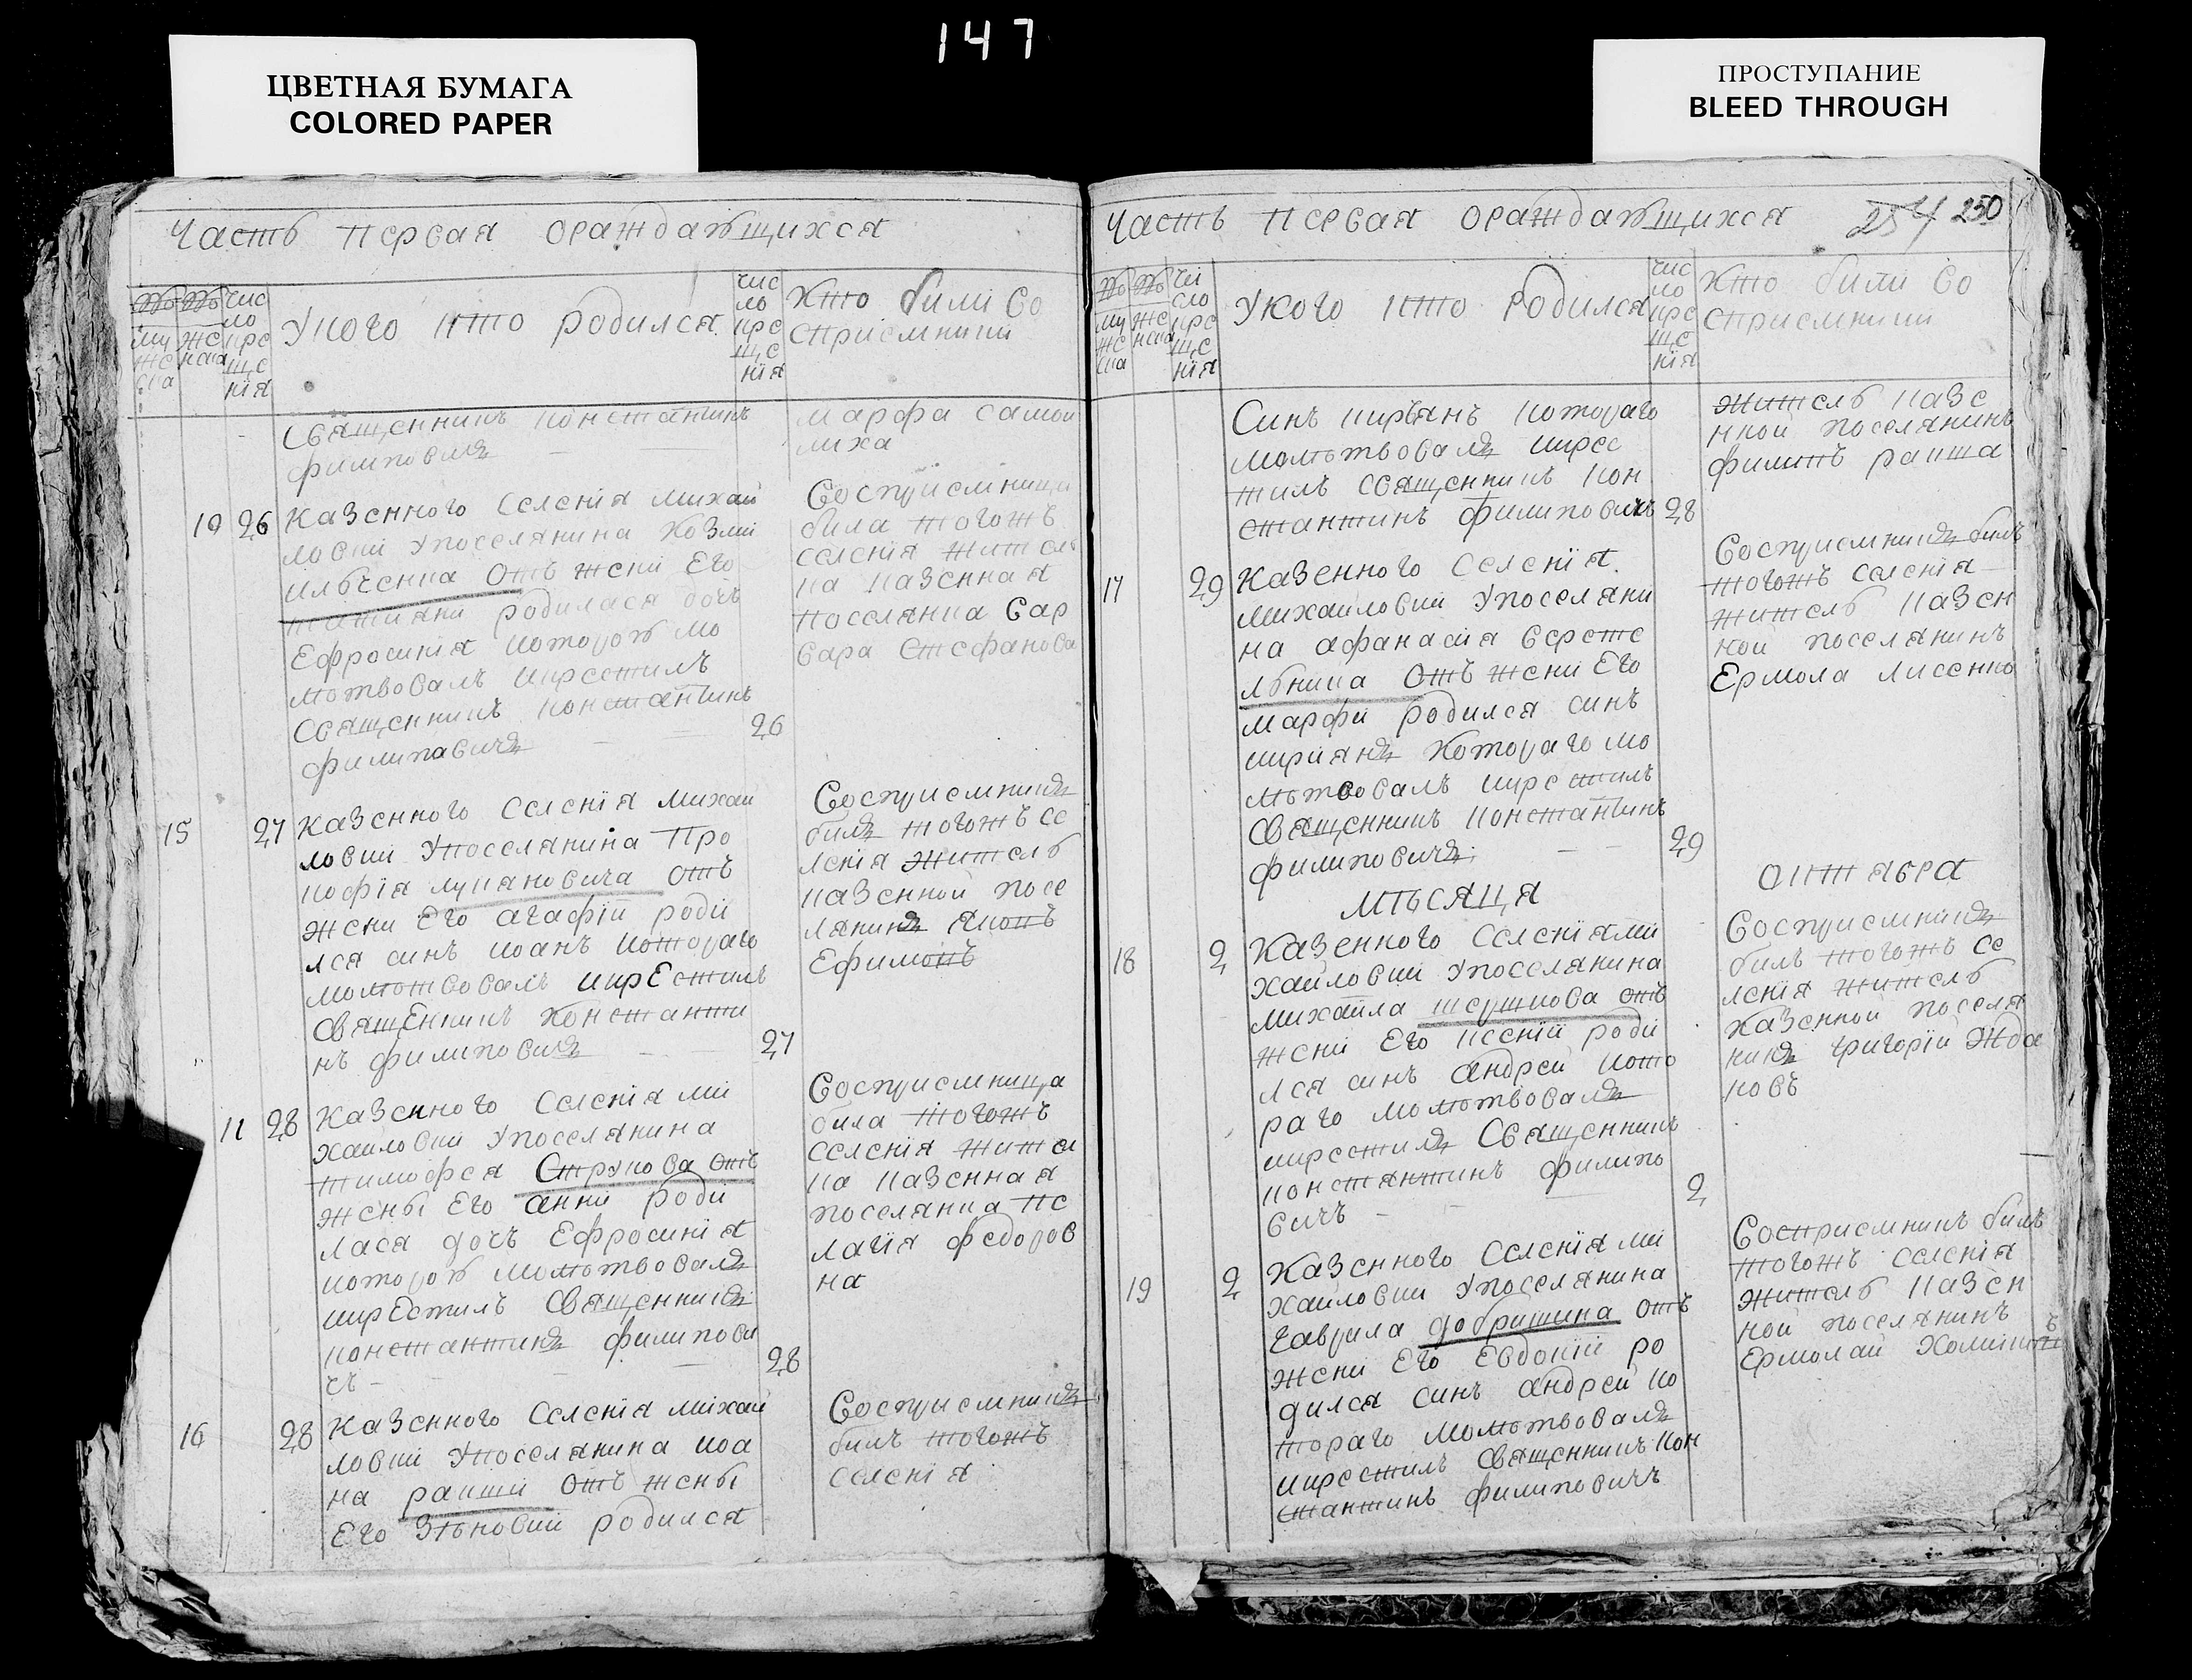 147
ЦВЕТНАЯ БУМАГА
COLORED PAPER
ПРОСТУПАНИЕ
BLEED THROUGH
Часть первая ораждающихся
№ мужеска
№ женска
число крещенія
Укого кто родился
число крещенія
Кто били во
сприемники
Священникъ константинъ
филиповичъ
марфа самой
лиха
10 26 Казенного селенія михай
ловки Упоселянина Козми
илбченка Отъ жени Его
татияни родилася дочь
Ефросинія которою мо
мотвовалъ икрестилъ
Священникъ константинъ
филиповичъ
26
Восприемница
била тогожъ
селенія жител
ка казенная
поселянка Вар
вара Стефанова
15 27 Казенного селенія михай
ловки Упоселянина Про
кофія лукяновича отъ
жени Его агафіи роди
лся синъ иоанъ котораго
момотвовалъ икрЕстилъ
свящЕнникъ Константи
нъ филиповичъ
27
Восприемникъ
билъ тогожъ се
ленія жителъ
казенной посе
лянинъ
11 28 Казенного селенія ми
хайловки Упоселянина
тимофея Струкова отъ
жены Его анни роди
лася дочъ Ефросинія
которою момотвовалъ
икрЕстилъ священникъ
константинъ филипови
чъ
28
Восприемница
била тогожъ
селенія жител
ка казенная
поселянка пе
лагія федоров
на
16 28 Казенного селенія михай
ловки Упоселянина иоа
на ракши отъ жены
Его Зѣновии родился
Восприемникъ
билъ тогожъ
селенія
Часть первая ораждающихся
254 250
№ мужеска
№ женска
число крещенія
Укого кто родился
число крещенія
Кто били во
сприемники
Синъ кирьянъ котораго
момотвовалъ икрес
тилъ священникъ кон
стантинъ филиповичъ
28
жителъ казе
нной поселянинъ
филипъ ракша
17 29 Казенного селенія
михайловки Упоселяни
на афанасія верете
лбника Отъ жени Его
марфи родился синъ
кириянъ Котораго мо
мотвовалъ икрестилъ
священникъ константинъ
филиповичъ
29
Восприемникъ билъ
тогожъ селенія
жителъ казен
ной поселянинъ
Ермола лисенко
мѢсяца
октября
18 2 Казенного селенія ми
хайловки Упоселянина
михайла шершнова отъ
жени Его ксеніи роди
лся синъ андрей кото
раго момотвовалъ
икрестилъ Священникъ
константинъ филипо
вичъ
2
Восприемникъ
билъ тогожъ се
ленія жителъ
казенной поселя
нинъ григорій Жда
новъ
19 2 Казенного селенія ми
хайловки Упоселянина
гаврила добришина отъ
жени Его Евдокіи ро
дился синъ андрей ко
тораго момотвовалъ
икрестилъ священникъ кон
стантинъ филиповичъ
Восприемникъ билъ
тогожъ селенія
жителъ казен
ной поселянинъ
Ермолай